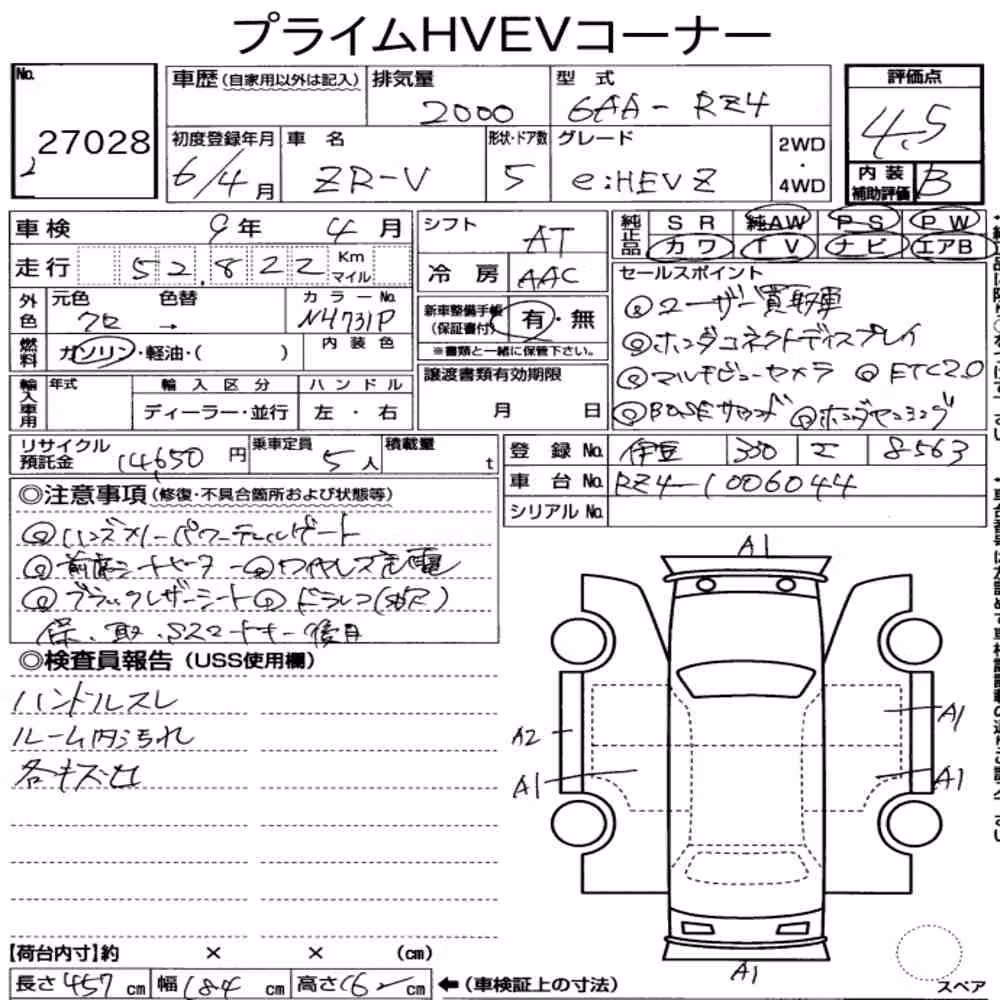 プライムHVEVコーナー
No. 27028
車歴(自家用以外は記入)
排気量 2000
型式 6AA-RZ4
評価点 4.5
内装補助評価 B
初度登録年月 6/4月
車名 ZR-V
形状・ドア数 5
グレード e:HEV Z
2WD・4WD
車検 9年 4月
シフト AT
純正品 SR 純AW PS PW
カワ TV ナビ エアB
走行 52,822 Km マイル
冷房 AAC
セールスポイント
◎ユーザー買取車
◎ホンダコネクトディスプレイ
◎マルチビューカメラ ◎ETC2.0
◎BOSEサウンド ◎ホンダセンシング
外色 元色 クロ → 色替
カラーNo. N4731P
新車整備手帳(保証書付) 有・無
※書類と一緒に保管下さい。
燃料 ガソリン・軽油・( )
内装色
輸入車用 年式
輸入区分 ディーラー・並行
ハンドル 左・右
譲渡書類有効期限
月 日
リサイクル預託金 14,650円
乗車定員 5人
積載量 t
登録No. 伊豆 330 8563
車台No. RZ4-1006044
シリアルNo.
◎注意事項(修復・不具合箇所および状態等)
◎ハンズフリーパワーテールゲート
◎前席シートヒーター ◎ワイヤレス充電
◎ブラックレザーシート ◎ドラレコ
保、取、Sスマートキー後日
◎検査員報告(USS使用欄)
ハンドルスレ
ルーム内汚れ
各キズ凹
A1
A1
A2
A1
A1
A1
【荷台内寸】約 × × (cm)
長さ 457 cm 幅 184 cm 高さ 162 cm
←(車検証上の寸法)
スペア